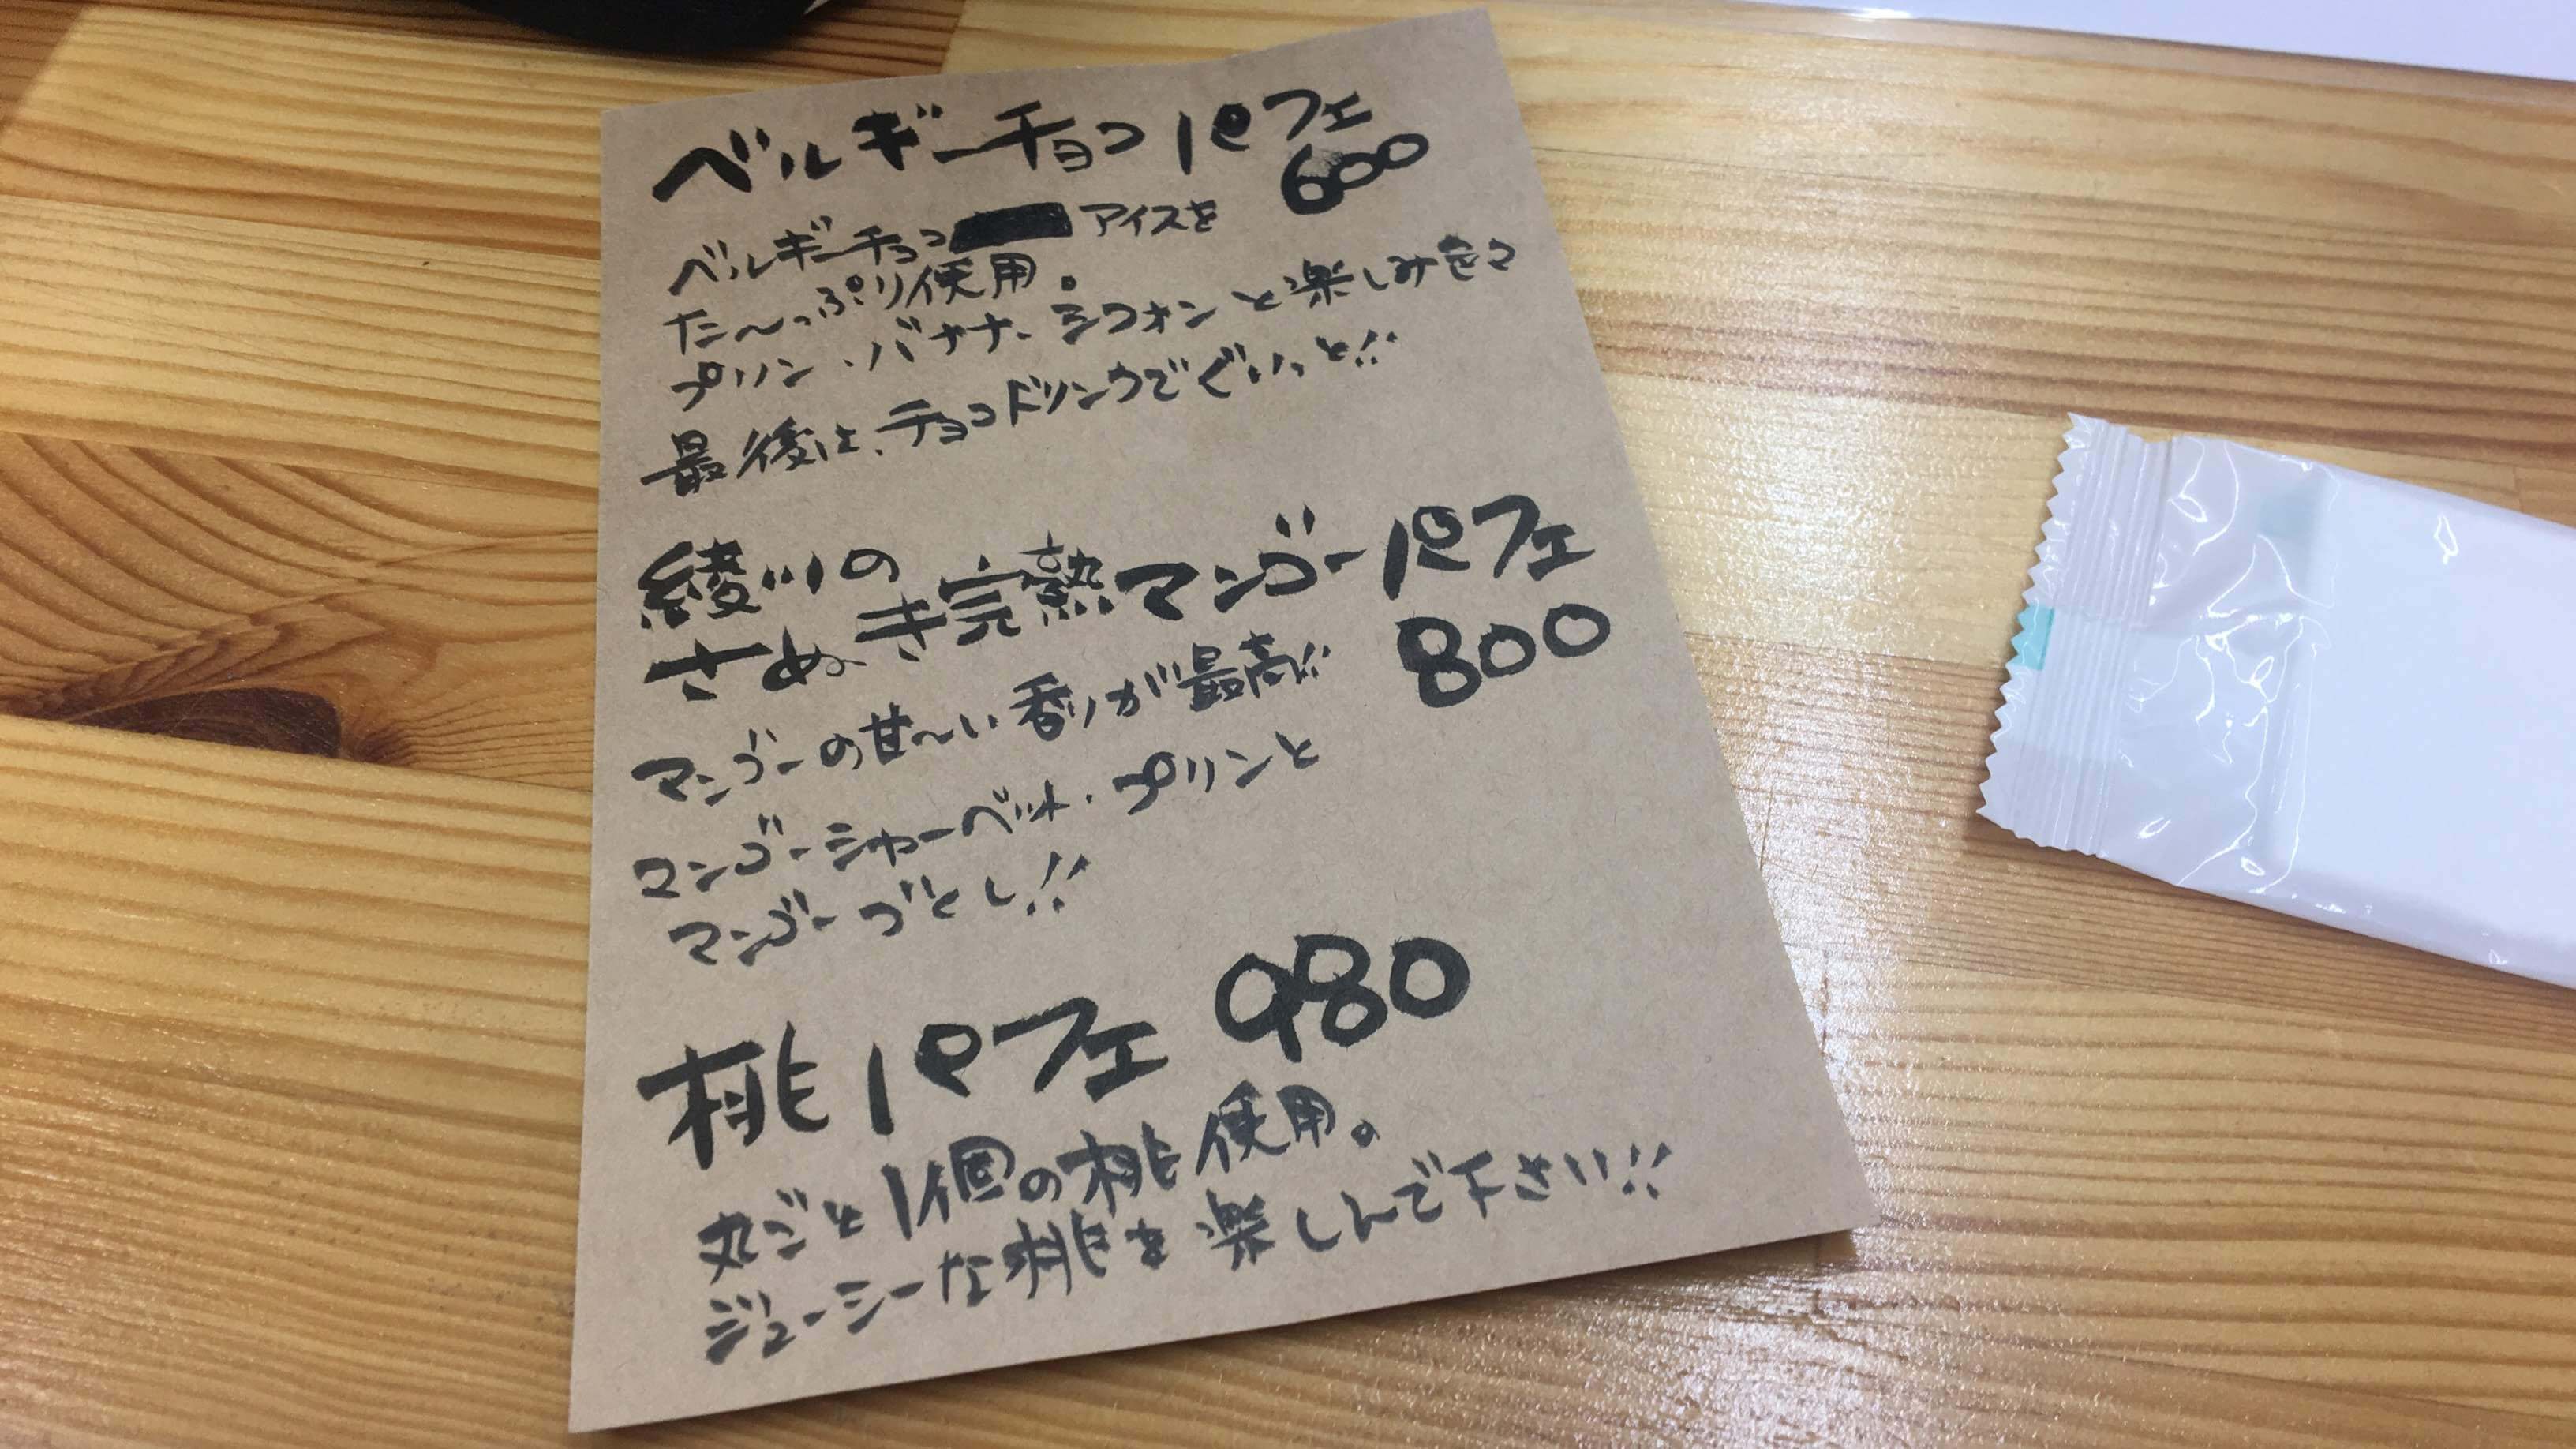 ベルギーチョコパフェ
600
ベルギーチョコ アイスを
た〜っぷり使用。
プリン・バナナ・シフォンと楽しみ
最後は、チョコドリンクでぐいっと!!
綾川の
さぬき完熟マンゴーパフェ
800
マンゴーの甘〜い香りが最高!!
マンゴーシャーベット・プリンと
マンゴーづくし!!
桃パフェ 980
丸ごと1個の桃使用。
ジューシーな桃を楽しんで下さい!!